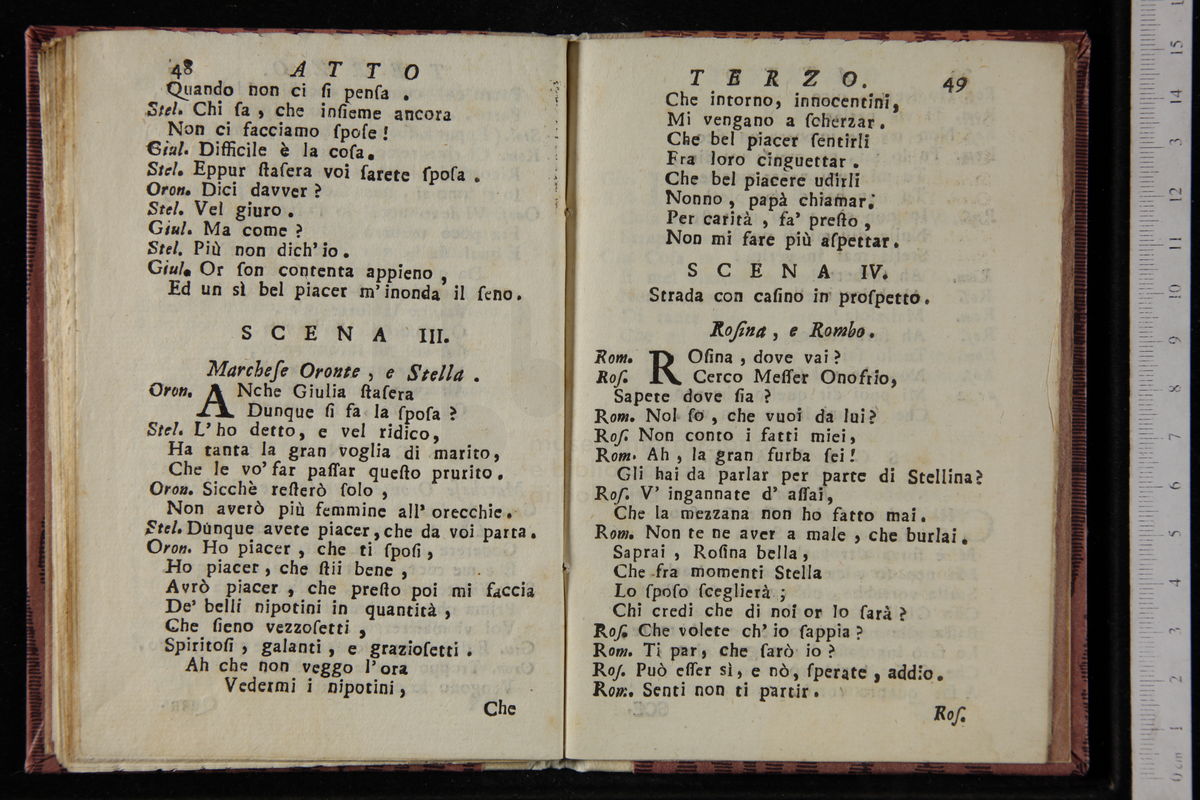 48 ATTO
Quando non ci ſi penſa .
Stel. Chi ſa , che inſieme ancora
Non ci facciamo ſpoſe !
Giul. Difficile è la coſa.
Stel. Eppur ſtaſera voi ſarete ſpoſa .
Oron. Dici davver ?
Stel. Vel giuro .
Giul. Ma come ?
Stel. Più non dich' io .
Giul. Or ſon contenta appieno ,
Ed un sì bel piacer m' inonda il ſeno.
SCENA III.
Marcheſe Oronte , e Stella .
Oron. ANche Giulia ſtaſera
Dunque ſi fa la ſpoſa ?
Stel. L' ho detto, e vel ridico,
Ha tanta la gran voglia di marito,
Che le vo' far paſſar queſto prurito.
Oron. Sicchè reſterò ſolo ,
Non averò più femmine all' orecchie.
Stel. Dunque avete piacer, che da voi parta.
Oron. Ho piacer , che ti ſpoſi ,
Ho piacer , che ſtii bene ,
Avrò piacer , che preſto poi mi faccia
De' belli nipotini in quantità ,
Che ſieno vezzoſetti ,
Spiritoſi , galanti , e grazioſetti .
Ah che non veggo l' ora
Vedermi i nipotini ,
Che
TERZO. 49
Che intorno, innocentini,
Mi vengano a ſcherzar.
Che bel piacer ſentirli
Fra loro cinguettar .
Che bel piacere udirli
Nonno , papà chiamar;
Per carità , fa' preſto ,
Non mi fare più aſpettar.
SCENA IV.
Strada con caſino in proſpetto.
Roſina , e Rombo.
Rom. ROſina , dove vai ?
Roſ. Cerco Meſſer Onofrio,
Sapete dove ſia ?
Rom. Nol ſo , che vuoi da lui ?
Roſ. Non conto i fatti miei,
Rom. Ah , la gran furba ſei !
Gli hai da parlar per parte di Stellina ?
Roſ. V' ingannate d' aſſai,
Che la mezzana non ho fatto mai.
Rom. Non te ne aver a male , che burlai.
Saprai , Roſina bella ,
Che fra momenti Stella
Lo ſpoſo ſceglierà ;
Chi credi che di noi or lo ſarà ?
Roſ. Che volete ch' io ſappia ?
Rom. Ti par, che ſarò io ?
Roſ. Può eſſer sì, e nò, ſperate , addio.
Rom. Senti non ti partir .
Roſ.
0 cm 1 2 3 4 5 6 7 8 9 10 11 12 13 14 15